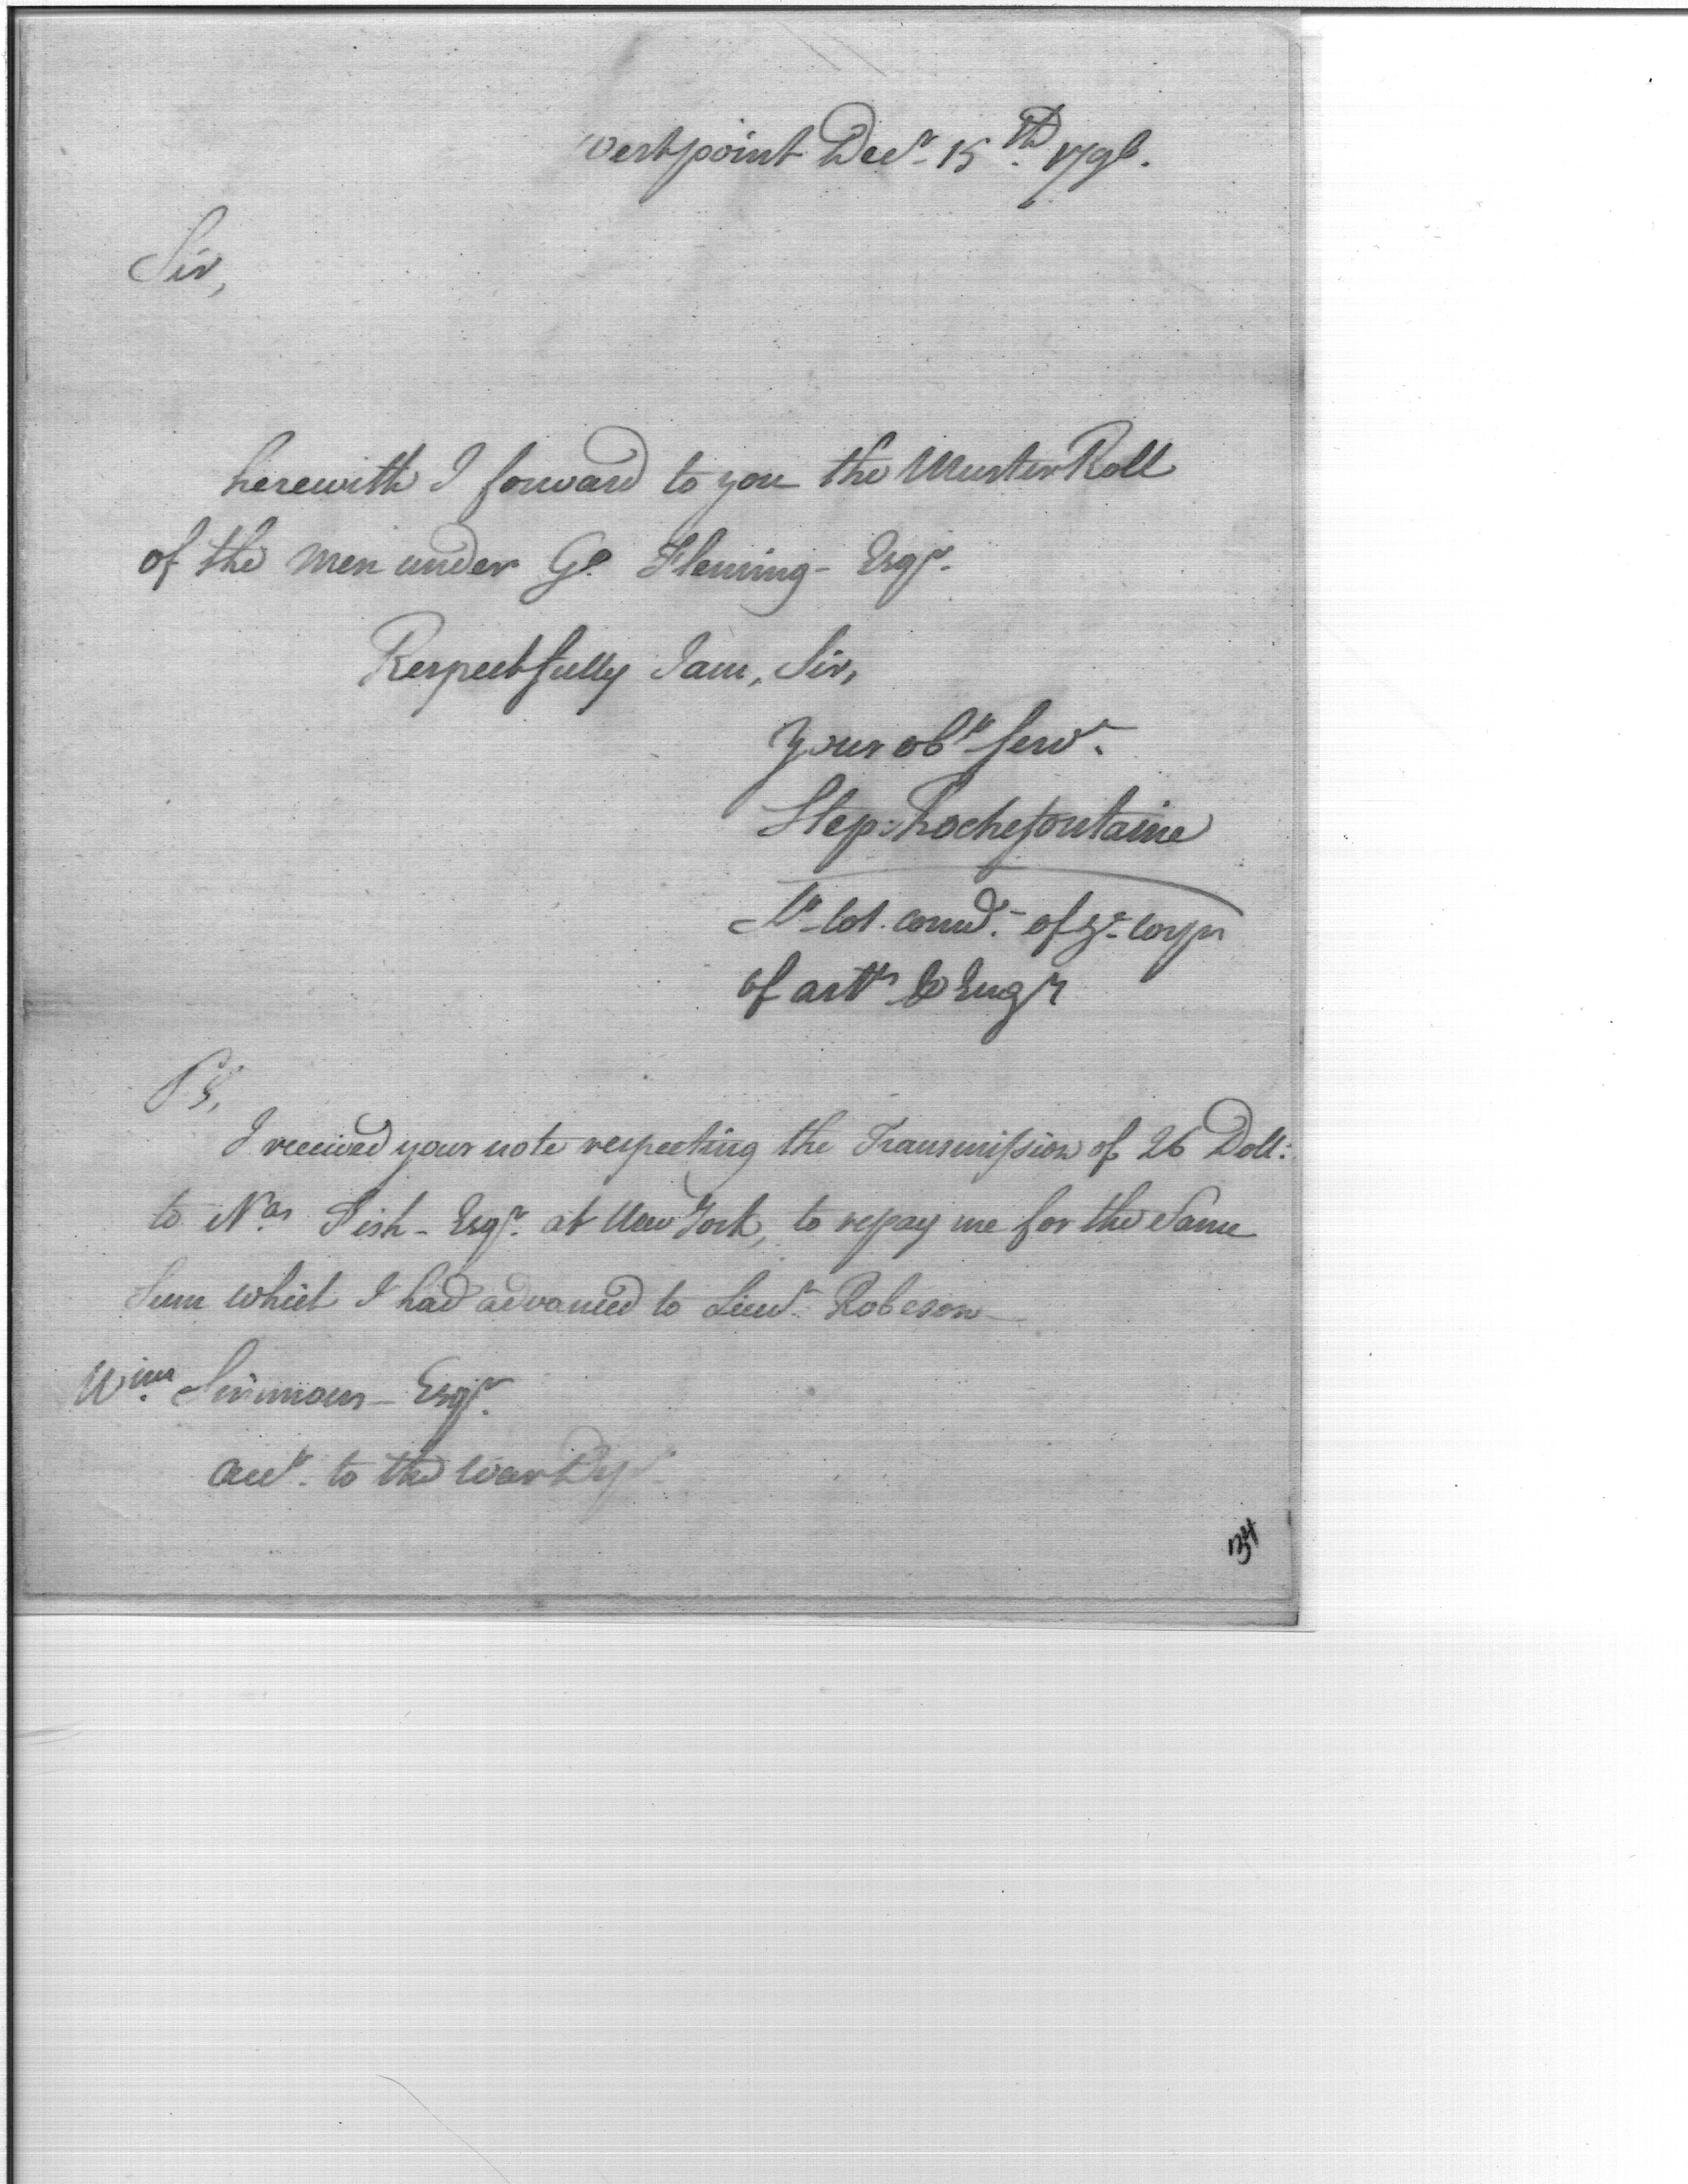 Westpoint Decr 15th 1796.
Sir,
herewith I forward to you the Muster Roll
of the men under Go. Fleming - Esqr.
Respectfully I am, Sir,
Your obt Servt.
Step: Rochefontaine
Lt Col. comdt. of ye corps
of artts & Engrs
PS,
I received your note respecting the Transmission of 26 Doll:
to Nas Fish - Esqr. at New York, to repay me for the Same
Sum which I had advanced to Lieut Robeson
Wim Simmons - Esqr.
acct. to the War Dept
134